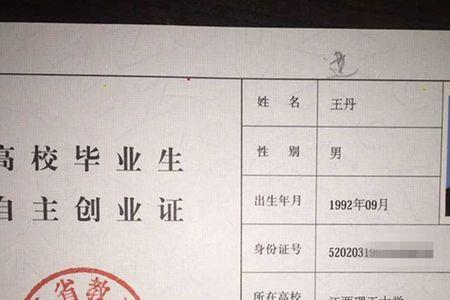 姓名 王丹
高校毕业生
性别 男
自主创业证
出生年月 1992年09月
身份证号 52020319
省教
所在高校 江西理工大学